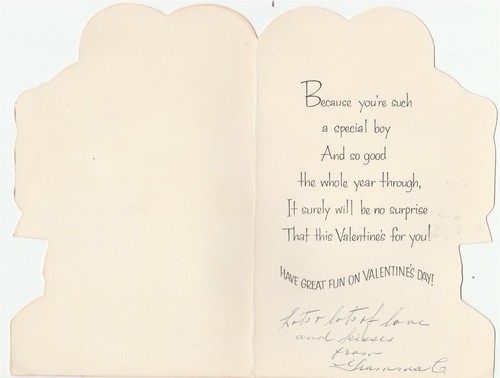 Because you're such
a special boy
And so good
the whole year through,
It surely will be no surprise
That this Valentine's for you!
HAVE GREAT FUN ON VALENTINE'S DAY!
Lots & lots of love
and kisses
from
Gramma C.